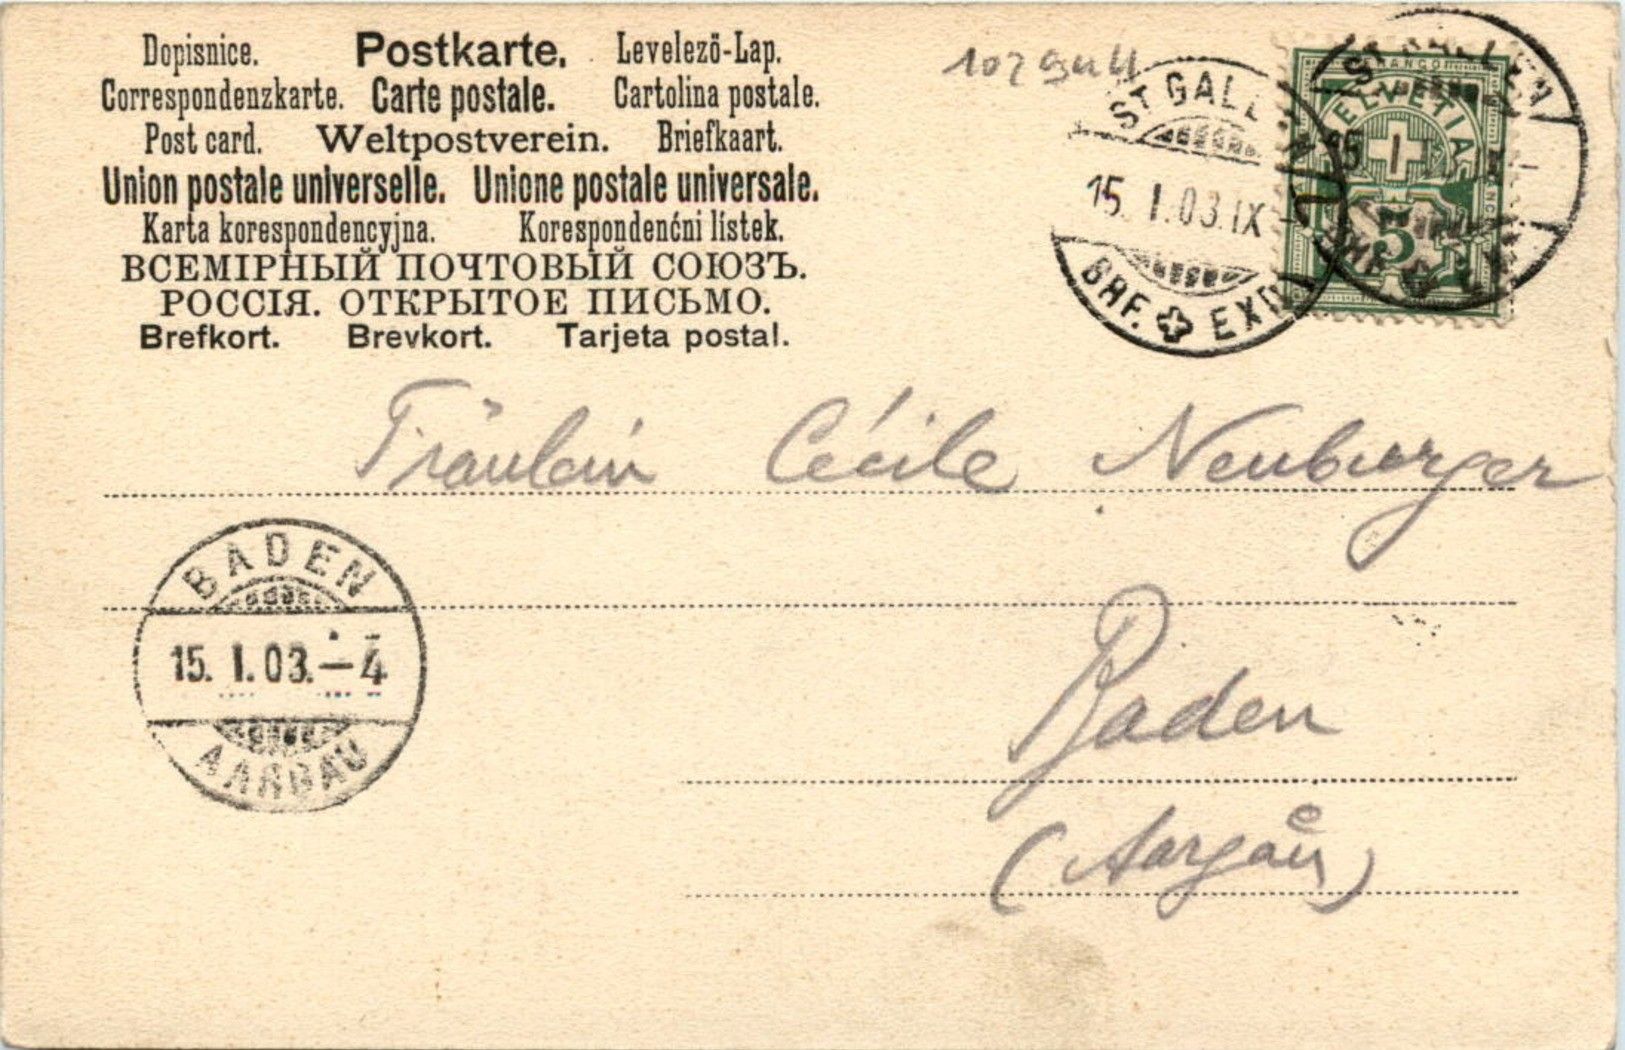 Dopisnice. Postkarte. Levelező-Lap.
Correspondenzkarte. Carte postale. Cartolina postale.
Post card. Weltpostverein. Briefkaart.
Union postale universelle. Unione postale universale.
Karta korespondencyjna. Korespondenćni listek.
ВСЕМІРНЫЙ ПОЧТОВЫЙ СОЮЗЪ.
РОССІЯ. ОТКРЫТОЕ ПИСЬМО.
Brefkort. Brevkort. Tarjeta postal.
ST. GALLEN
15. I. 03. IX
BRF. EXP.
FRANCO
HELVETIA
5
ST. GALLEN
15
Fräulein Cécile Neuburger
BADEN
15. I. 03. – 4
AARGAU
Baden
(Aargau)